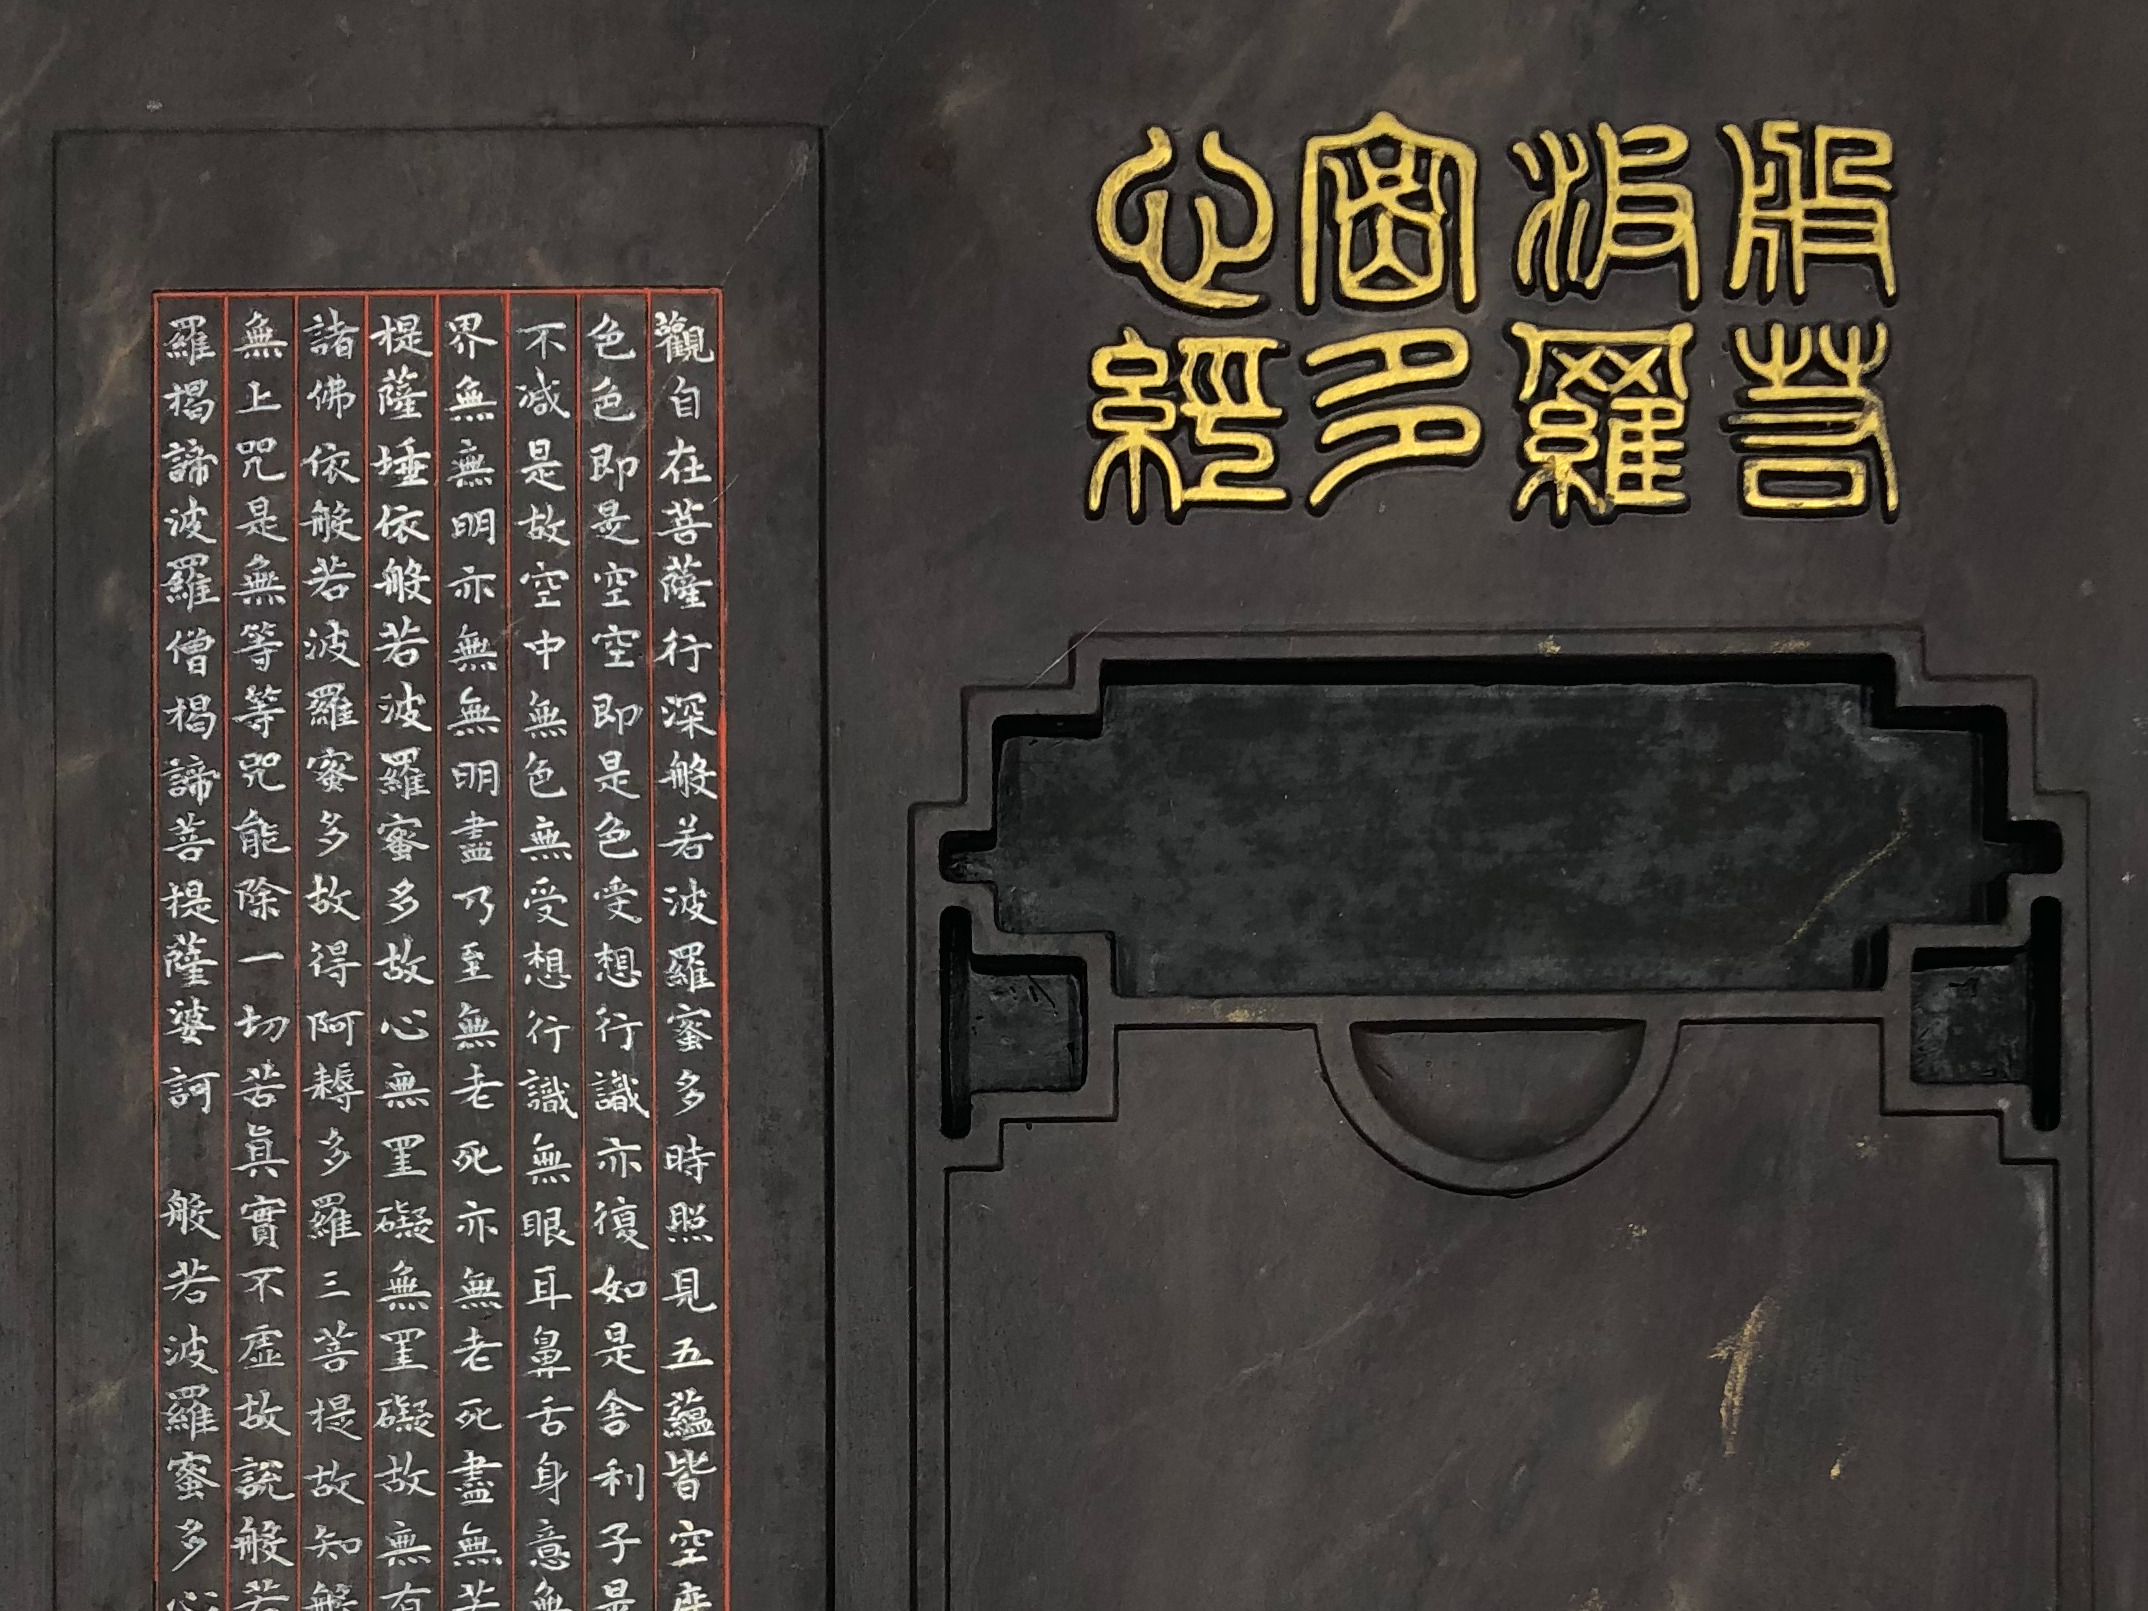 般若
波羅
密多
心經
觀自在菩薩行深般若波羅蜜多時照見五蘊皆空度
色色即是空空即是色受想行識亦復如是舍利子是
不減是故空中無色無受想行識無眼耳鼻舌身意無
界無無明亦無無明盡乃至無老死亦無老死盡無苦
提薩埵依般若波羅蜜多故心無罣礙無罣礙故無有
諸佛依般若波羅蜜多故得阿耨多羅三菩提故知般
無上咒是無等等咒能除一切苦眞實不虛故說般若
羅揭諦波羅僧揭諦菩提薩婆訶 般若波羅蜜多心